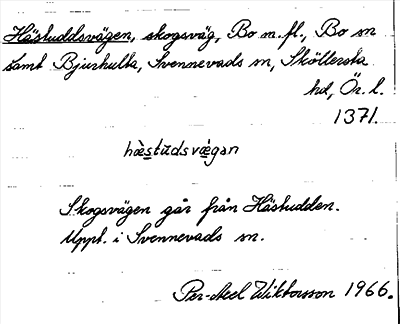 Hästuddsvägen, skogsväg, Bo m.fl., Bo sn
samt Bjurhulta, Svennevads sn, Sköllersta
hd, Ör. l.
1371.
hæ̀stùdsvæ̀gən
Skogsvägen går från Hästudden.
Uppt. i Svennevads sn.
Per-Axel Wiktorsson 1966.